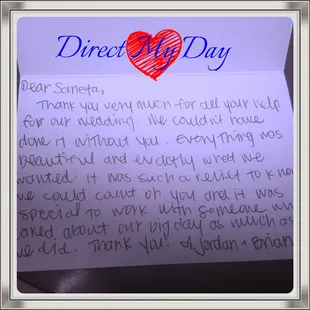 Direct My Day
Dear Saneta,
Thank you very much for all your help
for our wedding. We couldn't have
done it without you. Everything was
beautiful and exactly what we
wanted. It was such a relief to know
we could count on you and it was
special to work with someone who
cared about our big day as much as
we did. Thank You! Jordan + Brian